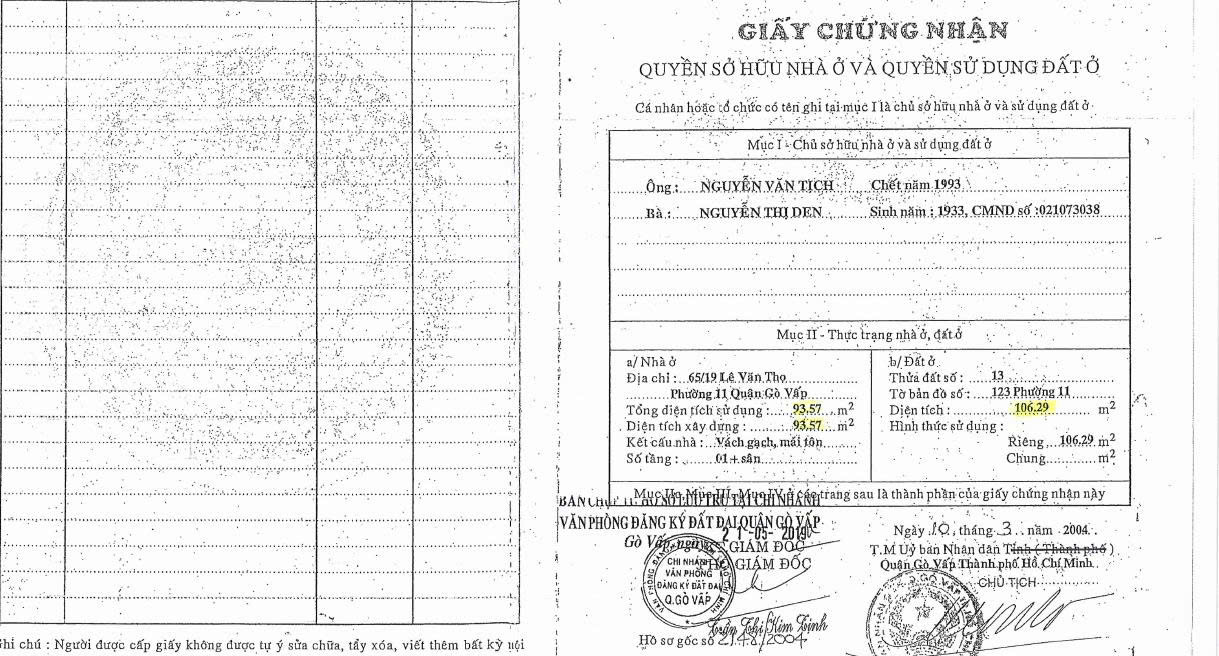 GIẤY CHỨNG NHẬN
QUYỀN SỞ HỮU NHÀ Ở VÀ QUYỀN SỬ DỤNG ĐẤT Ở
Cá nhân hoặc tổ chức có tên ghi tại mục I là chủ sở hữu nhà ở và sử dụng đất ở
Mục I - Chủ sở hữu nhà ở và sử dụng đất ở
Ông : NGUYỄN VĂN TỊCH Chết năm 1993
Bà : NGUYỄN THỊ DEN Sinh năm : 1933, CMND số :021073038
Mục II - Thực trạng nhà ở, đất ở
a/ Nhà ở
Địa chỉ : 65/19 Lê Văn Thọ
Phường 11 Quận Gò Vấp
Tổng diện tích sử dụng : 93.57 m²
Diện tích xây dựng : 93.57 m²
Kết cấu nhà : Vách gạch, mái tôn
Số tầng : 01 + sân
b/ Đất ở
Thửa đất số : 13
Tờ bản đồ số : 123 Phường 11
Diện tích : 106.29 m²
Hình thức sử dụng :
Riêng 106.29 m²
Chung m²
các trang sau là thành phần của giấy chứng nhận này
VĂN PHÒNG ĐĂNG KÝ ĐẤT ĐAI QUẬN GÒ VẤP
21-05-2019
Gò Vấp, ngày
GIÁM ĐỐC
GIÁM ĐỐC
CHI NHÁNH
VĂN PHÒNG
ĐĂNG KÝ ĐẤT ĐAI
Q.GÒ VẤP
Trần Thị Kim Linh
Hồ sơ gốc số
Ngày 10 tháng 3 năm 2004
T.M Uỷ ban Nhân dân Tỉnh ( Thành phố )
Quận Gò Vấp Thành phố Hồ Chí Minh
CHỦ TỊCH
Ghi chú : Người được cấp giấy không được tự ý sửa chữa, tẩy xóa, viết thêm bất kỳ nội